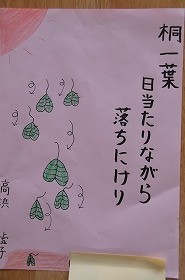 桐一葉
日当たりながら
落ちにけり
高浜 虚子